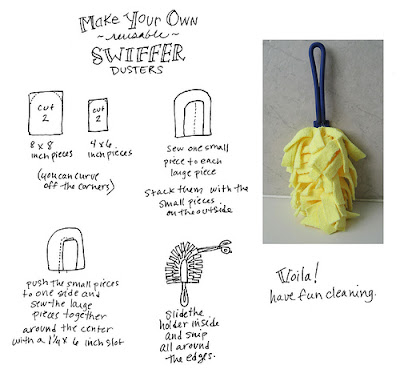 Make Your Own
~reusable~
SWIFFER
DUSTERS
cut
2
cut
2
8 x 8
inch pieces
4 x 6
inch pieces
(you can curve
off the corners)
sew one small
piece to each
large piece
stack them with the
small pieces
on the outside.
push the small pieces
to one side and
sew the large
pieces together
around the center
with a 1 1/4 x 6 inch slot
slide the
holder inside
and snip
all around
the edges.
Voila!
have fun cleaning.